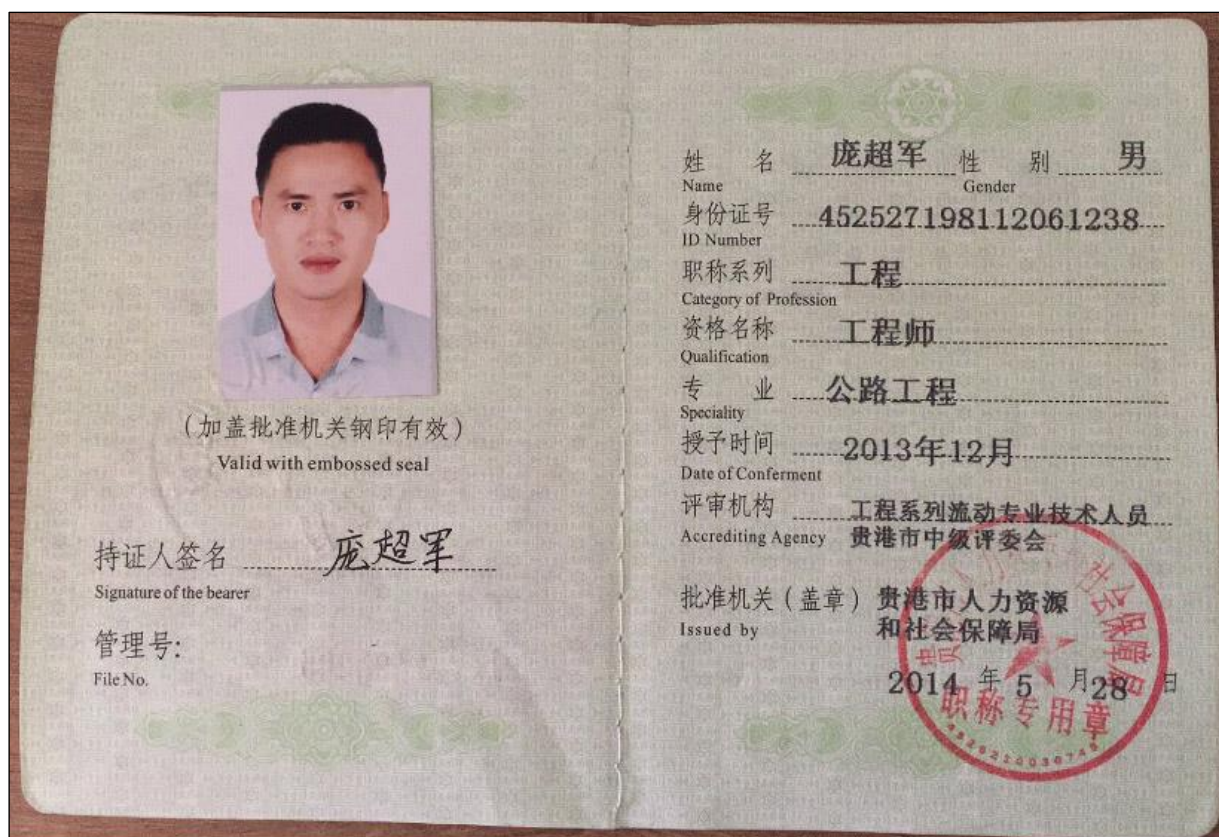 (加盖批准机关钢印有效)
Valid with embossed seal
持证人签名 庞超军
Signature of the bearer
管理号:
File No.
姓 名 庞超军 性 别 男
Name Gender
身份证号 452527198112061238
ID Number
职称系列 工程
Category of Profession
资格名称 工程师
Qualification
专 业 公路工程
Speciality
授予时间 2013年12月
Date of Conferment
评审机构 工程系列流动专业技术人员
Accrediting Agency 贵港市中级评委会
批准机关(盖章) 贵港市人力资源
Issued by 和社会保障局
2014 年 5 月 28 日
职称专用章